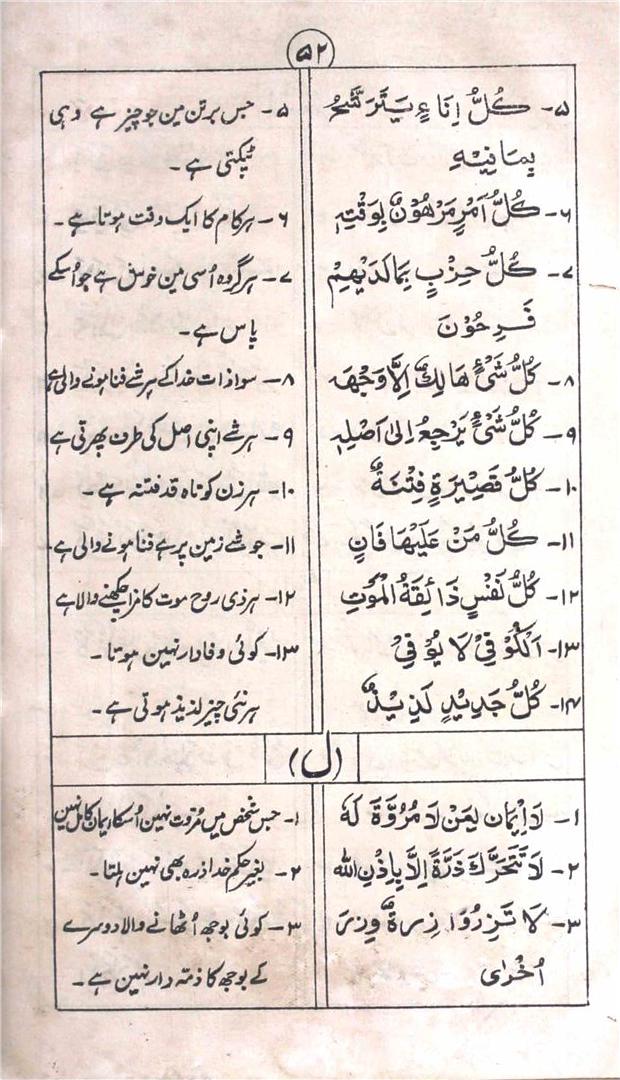 ۵۲
۵- كُلُّ اِنَاءٍ يَتَرَشَّحُ
بِمَا فِيْهِ
۶- كُلُّ اَمْرٍ مَرْهُوْنٌ بِوَقْتِهٖ
۷- كُلُّ حِزْبٍ بِمَا لَدَيْهِمْ
فَرِحُوْنَ
۸- كُلُّ شَيْءٍ هَالِكٌ اِلَّا وَجْهَهٗ
۹- كُلُّ شَيْءٍ يَرْجِعُ اِلىٰ اَصْلِهٖ
۱۰- كُلُّ قَصِيْرَةٍ فِتْنَةٌ
۱۱- كُلُّ مَنْ عَلَيْهَا فَانٍ
۱۲- كُلُّ نَفْسٍ ذَائِقَةُ الْمَوْتِ
۱۳- اَلْكُوْفِيْ لَا يُوْفِيْ
۱۴- كُلُّ جَدِيْدٍ لَذِيْذٌ
۵- جس برتن مین جو چیز ہے وہی
ٹپکتی ہے ۔
۶- ہر کام کا ایک وقت ہوتا ہے ۔
۷- ہر گروہ اُسی مین خوش ہے جو اُسکے
پاس ہے ۔
۸- سوا ذات خدا کے ہر شے فنا ہونے والی ہے
۹- ہر شے اپنی اصل کی طرف پھرتی ہے
۱۰- ہر زن کوتاہ قد فتنہ ہے ۔
۱۱- جو شے زمین پر ہے فنا ہونے والی ہے ۔
۱۲- ہر ذی روح موت کا مزا چکھنے والا ہے
۱۳- کوئی وفادار نہین ہوتا ۔
ہر نئی چیز لذیذ ہوتی ہے ۔
(ل)
۱- لَا اِيْمَانَ لِمَنْ لَا مُرُوَّةَ لَهٗ
۲- لَا تَتَحَرَّكُ ذَرَّةٌ اِلَّا بِاِذْنِ الله
۳- لَا تَزِرُ وَازِرَةٌ وِزْرَ
اُخْرٰى
۱- جس شخص میں مُروت نہین اُسکا ایمان کامل نہین
۲- بغیر حکم خدا ذرہ بھی نہین ہلتا ۔
۳- کوئی بوجھ اُٹھانے والا دوسرے
کے بوجھ کا ذمّہ دار نہین ہے ۔